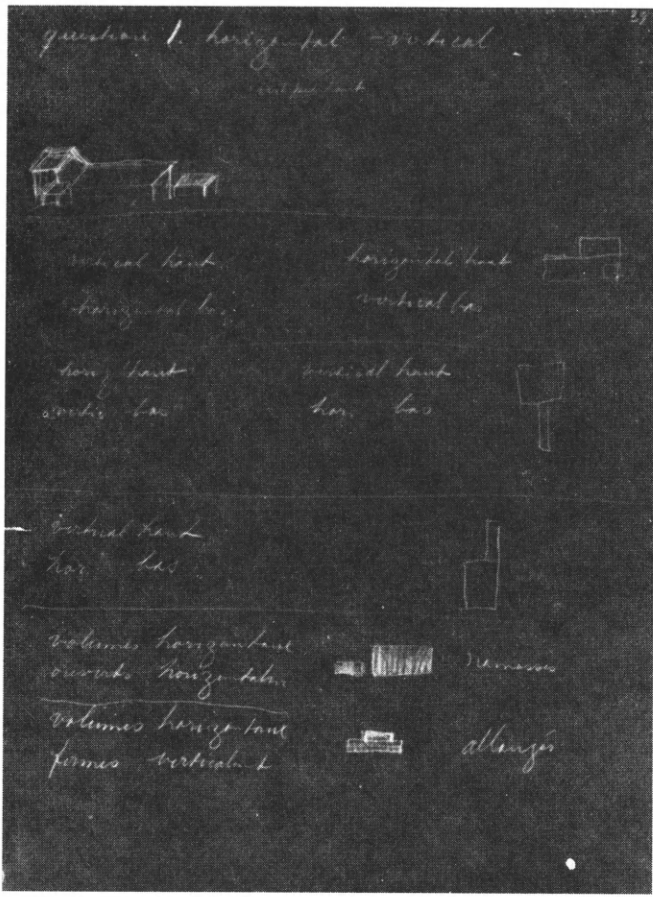 29
question 1. horizontal – vertical
important
vertical haut
horizontal bas
horizontal haut
vertical bas
horiz haut
vertic bas
vertical haut
hor. bas
vertical haut
hor. bas
volumes horizontaux
ouverts horizontalem
ramassés
volumes horizontaux
fermés verticalemt
allongés